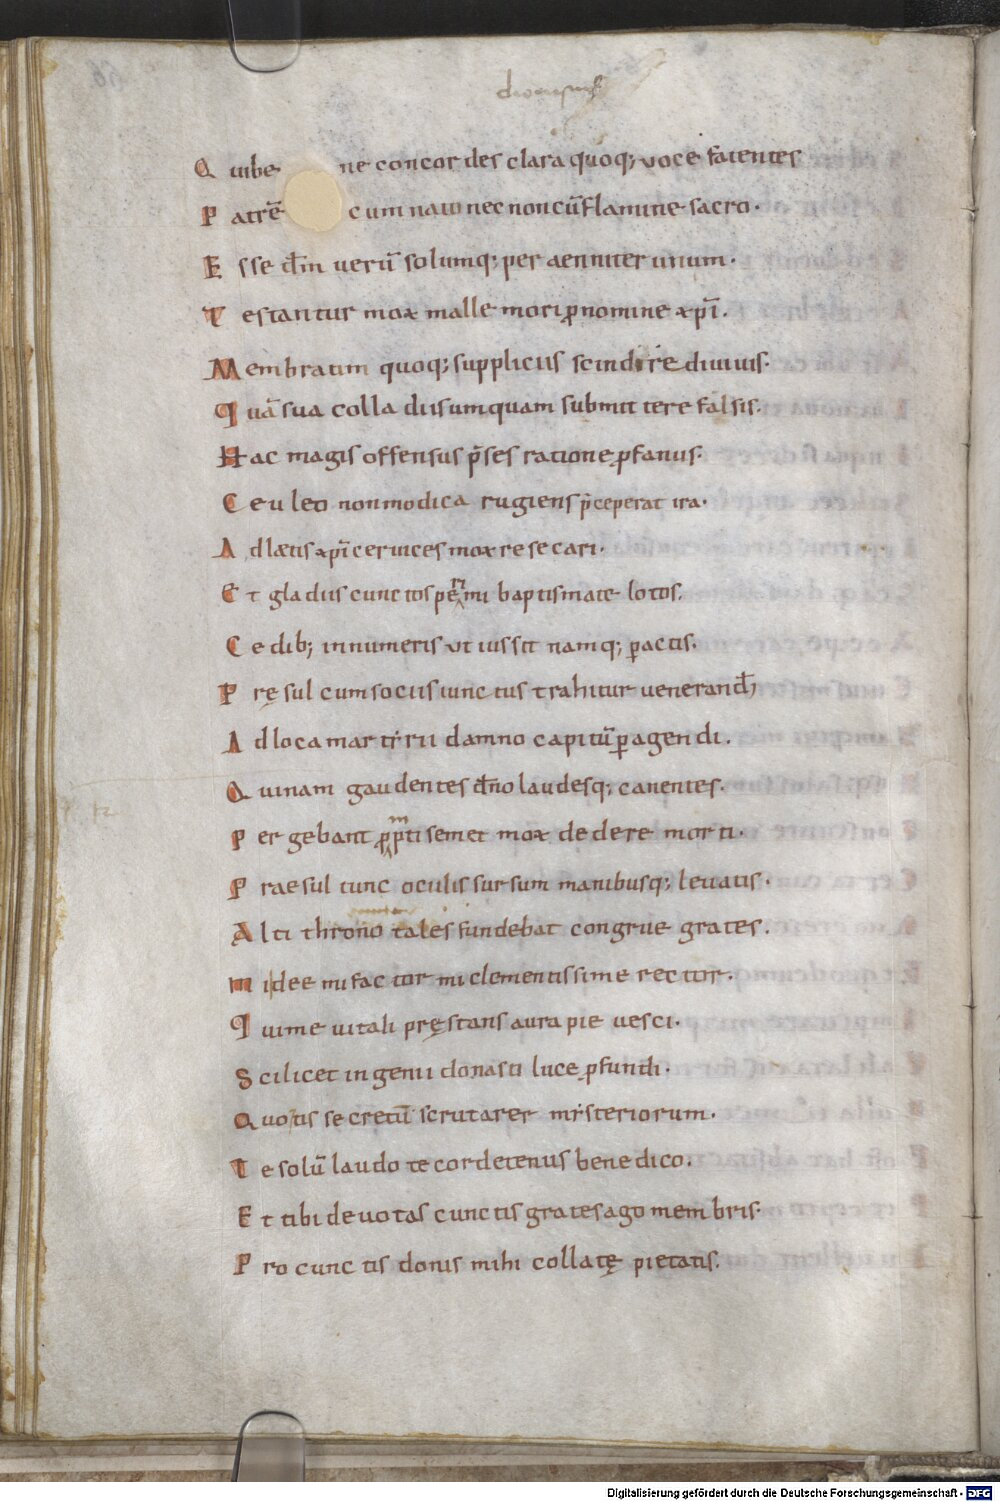 dionisius
Quibe ne concordes clara quoq; voce fatentes
Patrē cum nato nec non cū flamine sacro.
Esse dn̄m verū solumq; per aenniter unum.
Testantur mox malle mori ꝓ nomine xp̄i.
Membratim quoq; suppliciis scindire diuiuis.
Quā sua colla diis umquam submittere falsis.
Hac magis offensus p̄ses ratione ꝓfanus.
Ceu leo non modica rugiens p̄ceperat ira.
Ad lætis xp̄i ceruices mox resecari.
Et gladiis cunctos perimi baptismate lotos.
Cedib; innumeris ut iussit namq; ꝑactis.
Pręsul cum sociis iunctus trahitur uenerand;
Ad loca martyrii damno capitū ꝑagendi.
Qui nam gaudentes dn̄o laudesq; canentes.
Pergebant ꝓmpti semet mox dedere morti.
Praesul tunc oculis sursum manibusq; leuatis.
Alti throno tales fundebat congrue grates.
Mi dee mi factor mi clementissime rector.
Qui me uitali pręstans aura pie uesci.
Scilicet ingenii donasti luce ꝓfundi.
Quo tis secretū scrutarer mysteriorum.
Te solū laudo te cordetenus benedico.
Et tibi deuotas cunctis grates ago membris.
Pro cunctis donis mihi collatę pietatis.
Digitalisierung gefördert durch die Deutsche Forschungsgemeinschaft - DFG